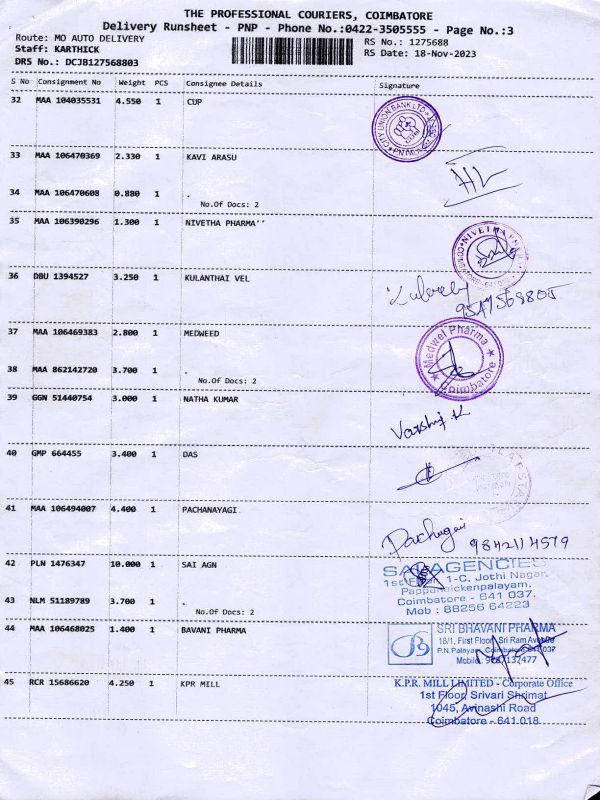 THE PROFESSIONAL COURIERS, COIMBATORE
Delivery Runsheet - PNP - Phone No.:0422-3505555 - Page No.:3
Route: MO AUTO DELIVERY
RS No.: 1275688
Staff: KARTHICK
RS Date: 18-Nov-2023
DRS No.: DCJB127568803
S No Consignment No Weight PCS Consignee Details Signature
32 MAA 104035531 4.550 1 CUP
CITY UNION BANK LTD
33 MAA 106470369 2.330 1 KAVI ARASU
34 MAA 106470608 0.880 1 .
No.Of Docs: 2
35 MAA 106390296 1.300 1 NIVETHA PHARMA''
36 DBU 1394527 3.250 1 KULANTHAI VEL
37 MAA 106469383 2.800 1 MEDWEED
Medwel Pharma
Coimbatore
38 MAA 862142720 3.700 1 .
No.Of Docs: 2
39 GGN 51440754 3.000 1 NATHA KUMAR
40 GMP 664455 3.400 1 DAS
41 MAA 106494007 4.400 1 PACHANAYAGI
9842114579
42 PLN 1476347 10.000 1 SAI AGN
SAI AGENCIES
1st Floor, 1-C, Jothi Nagar,
Pappanaickenpalayam,
Coimbatore - 641 037.
Mob : 88256 64223
43 NLM 51189789 3.700 1 .
No.Of Docs: 2
44 MAA 106468025 1.400 1 BAVANI PHARMA
SRI BHAVANI PHARMA
18/1, First Floor, Sri Ram Avenue
P.N.Palayam, Coimbatore-641037
Mobile:
45 RCR 15686620 4.250 1 KPR MILL
K.P.R. MILL LIMITED - Corporate Office
1st Floor, Srivari Shrimat
1045, Avinashi Road
Coimbatore - 641 018